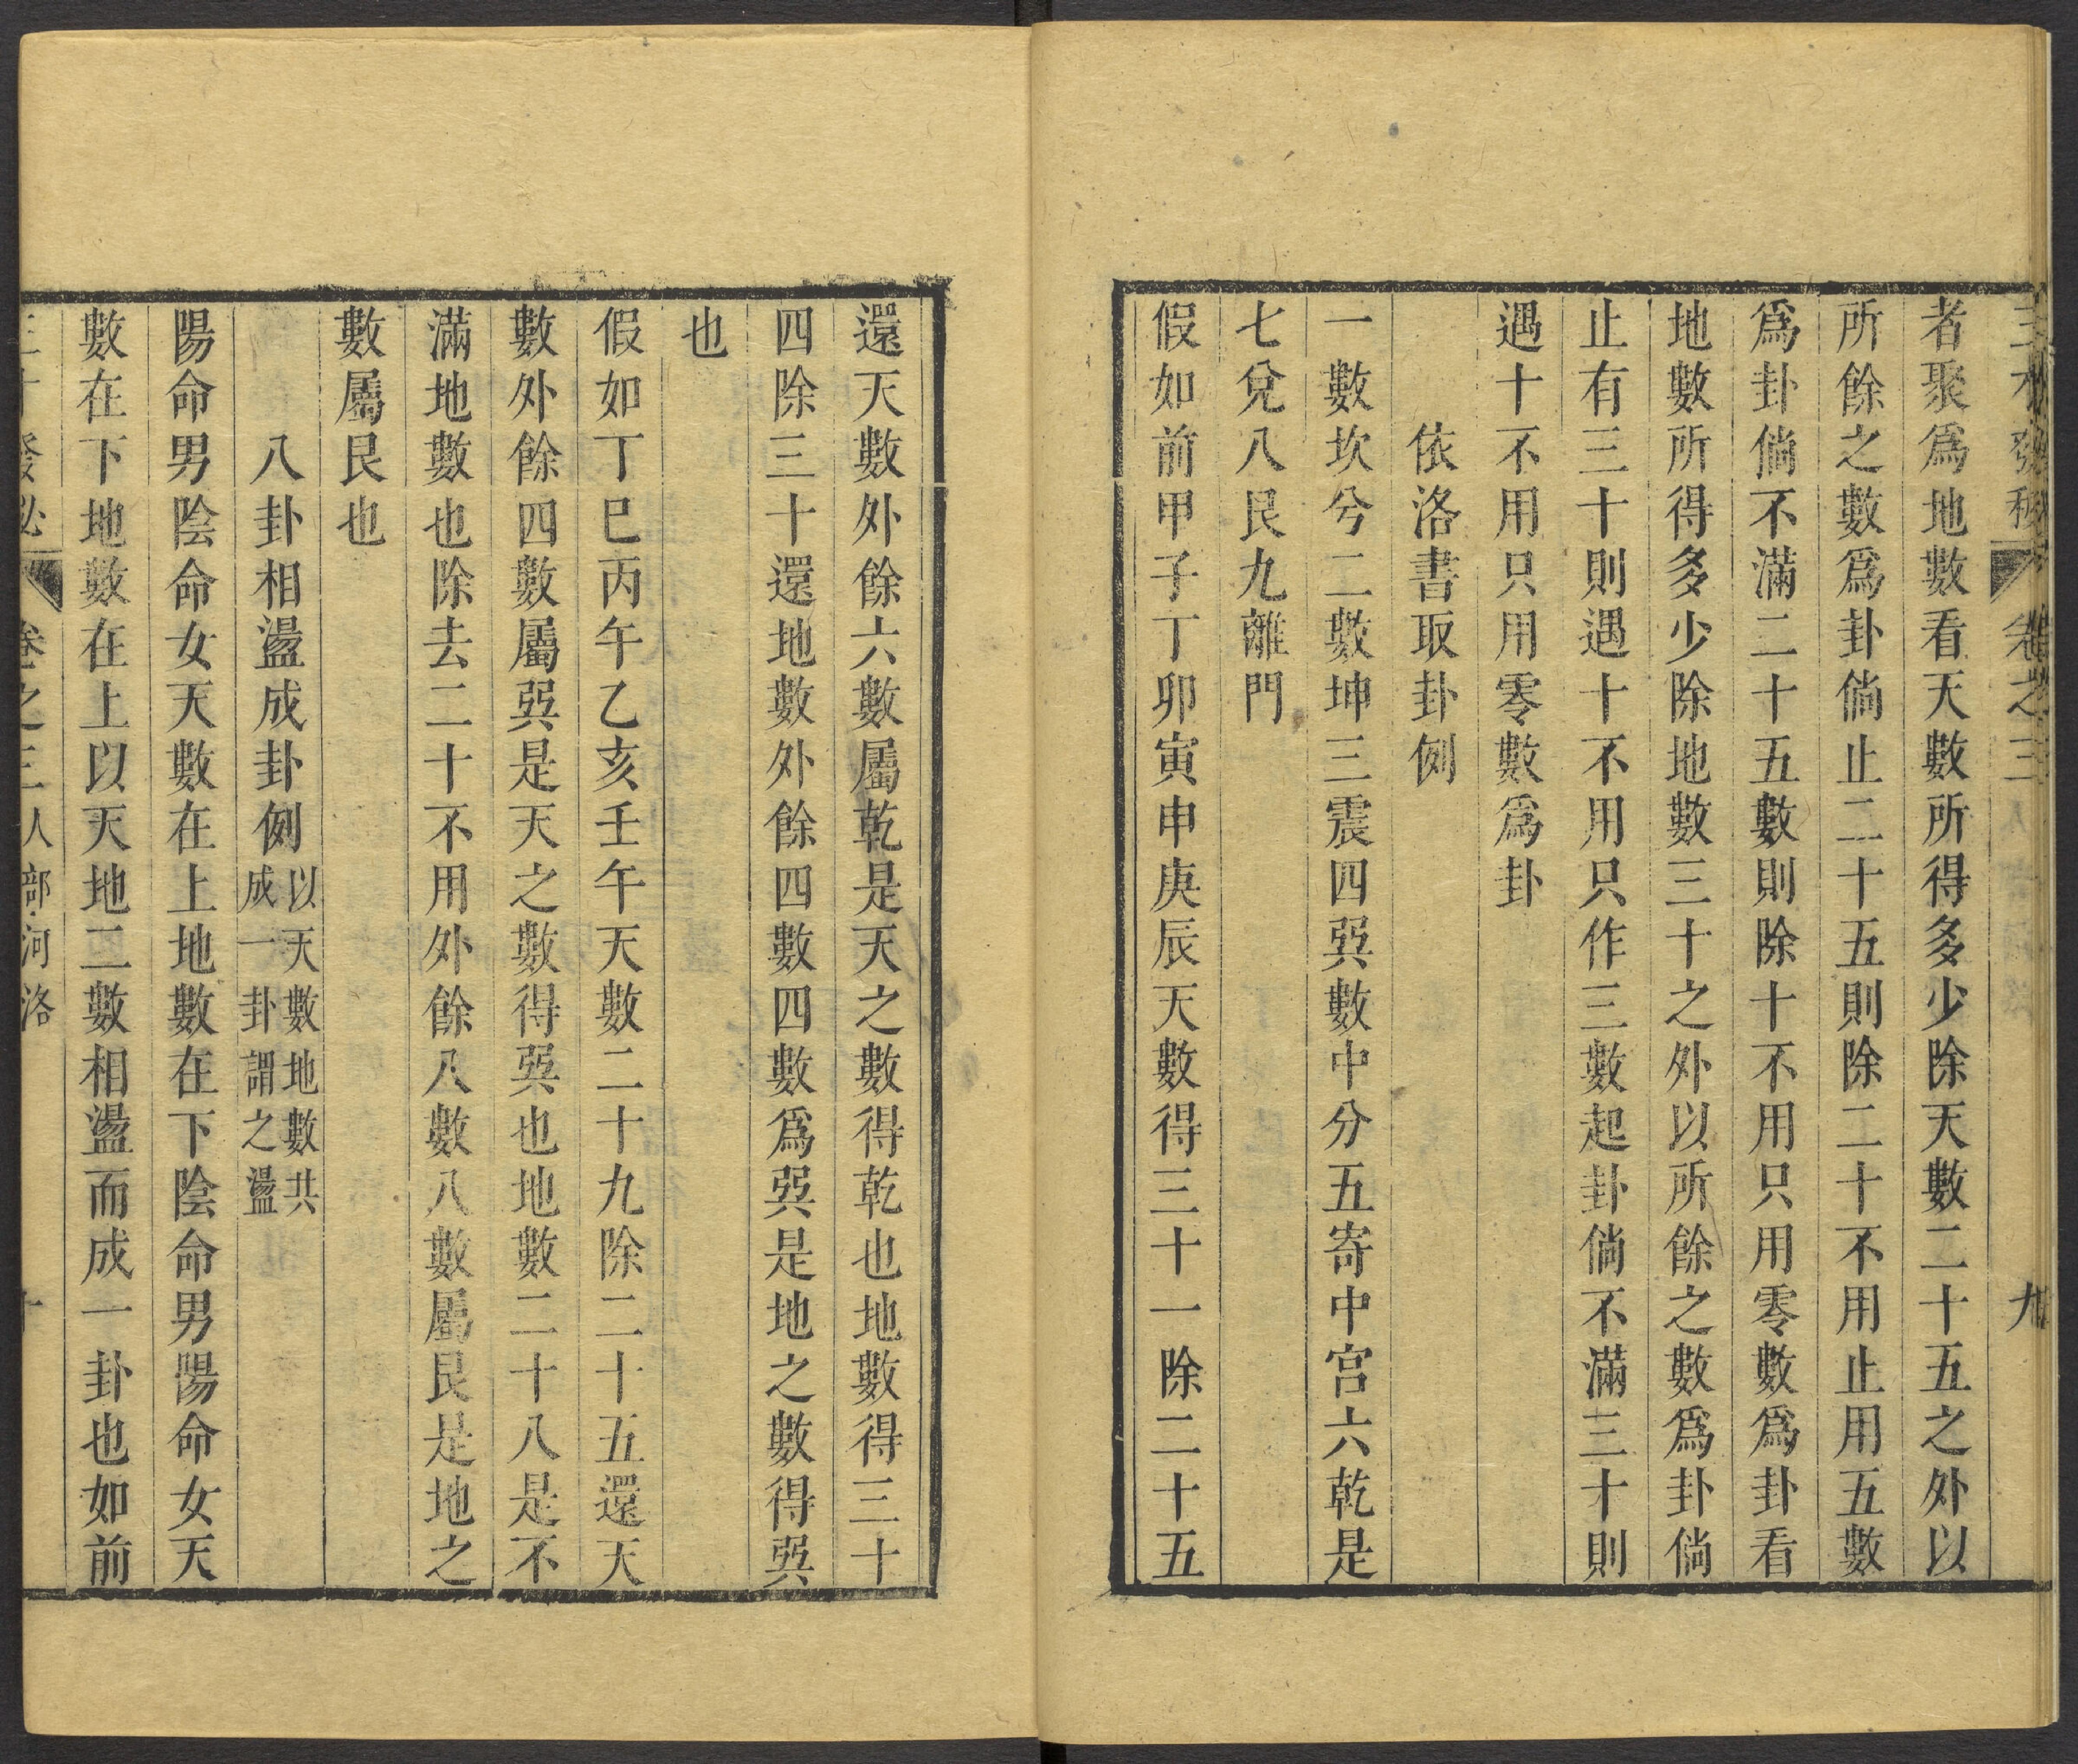 三才發秘
卷之三
九
者聚爲地數看天數所得多少除天數二十五之外以
所餘之數爲卦倘止二十五則除二十不用止用五數
爲卦倘不滿二十五數則除十不用只用零數爲卦看
地數所得多少除地數三十之外以所餘之數爲卦倘
止有三十則遇十不用只作三數起卦倘不滿三十則
遇十不用只用零數爲卦
依洛書取卦例
一數坎兮二數坤三震四巽數中分五寄中宫六乾是
七兌八艮九離門
假如前甲子丁卯寅申庚辰天數得三十一除二十五
還天數外餘六數屬乾是天之數得乾也地數得三十
四除三十還地數外餘四數四數爲巽是地之數得巽
也
假如丁巳丙午乙亥壬午天數二十九除二十五還天
數外餘四數屬巽是天之數得巽也地數二十八是不
滿地數也除去二十不用外餘八數八數屬艮是地之
數屬艮也
八卦相盪成卦例
以天數地數共
成一卦謂之盪
陽命男陰命女天數在上地數在下陰命男陽命女天
數在下地數在上以天地二數相盪而成一卦也如前
三才發秘
卷之三人部河洛
十